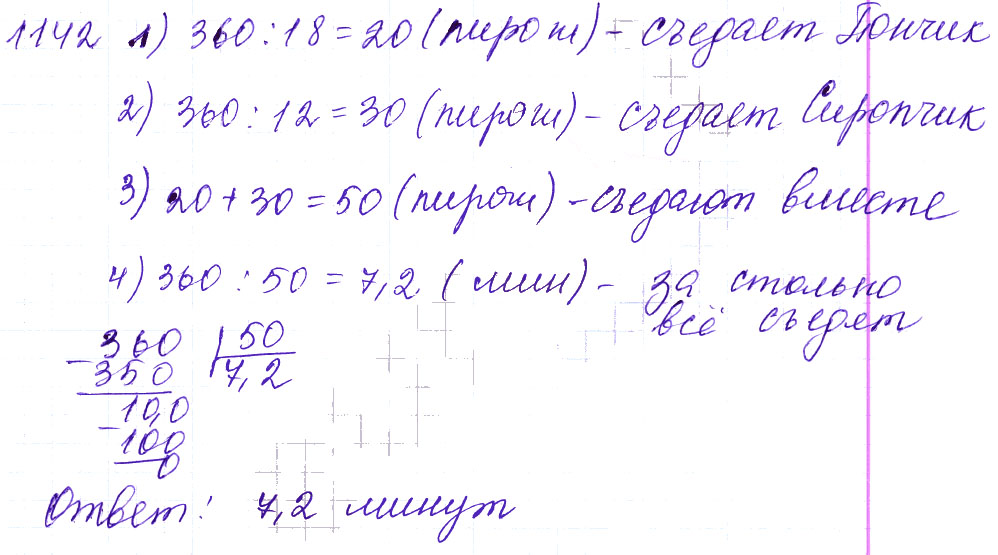 1142 1) 360 : 18 = 20 (пирож) - съедает Пончик
2) 360 : 12 = 30 (пирож) - съедает Сиропчик
3) 20 + 30 = 50 (пирож) - съедают вместе
4) 360 : 50 = 7,2 (мин) - за столько
всё съедят
360 50
- 350 7,2
10,0
- 100
0
Ответ: 7,2 минут